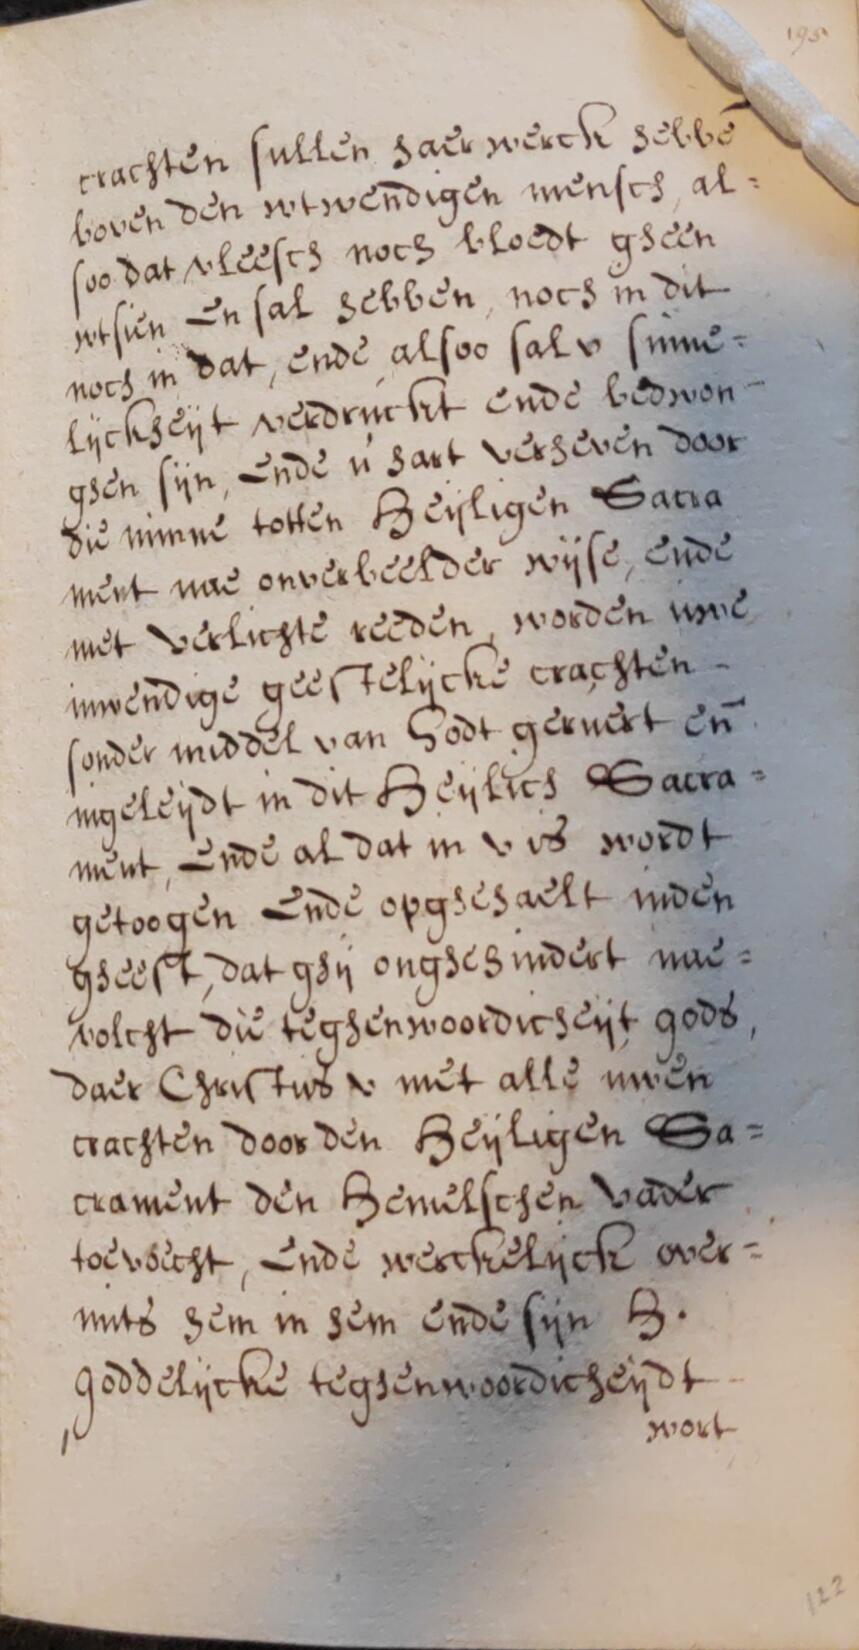 195
crachten sullen haer werck hebbē
boven den wtwendigen mensch, al=
soo dat vleesch noch bloedt gheen
wtsien en sal hebben, noch in dit
noch in dat, ende alsoo sal v sinne=
lijckheijt verdruckt ende bedwon-
ghen sijn, ende u hart verheven door
die minne totten Heijligen Sacra
ment nae onverbeelder wijse, ende
met verlichte reeden, worden uwe
inwendige geestelijcke crachten-
sonder middel van Godt geruert en̄
ingeleijdt in dit Heijlich Sacra=
ment, ende al dat in v is wordt
getoogen ende opghehaelt inden
gheest, dat ghij onghehindert nae=
volcht die teghenwoordicheijt gods,
daer Christus v met alle uwen
crachten door den Heijligen Sa=
crament den Hemelschen vader
toevoecht, ende werckelijck over=
mits hem in hem ende sijn H.
goddelijcke teghenwoordicheijdt
wort
122